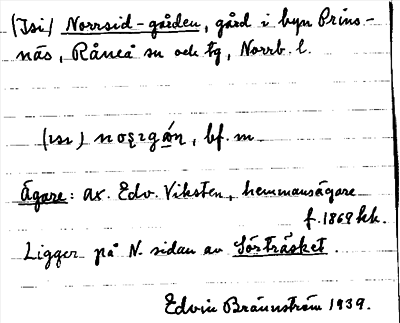 (Isi) Norrsid-gården, gård i byn Prins-
näs, Råneå sn och tg, Norrb. l.
(ısı) bf. m
Ägare: ax. Edv. Viksten, hemmansägare
f. 1869 kk.
Ligger på N. sidan av Sörträsket.
Edvin Brännström 1939.